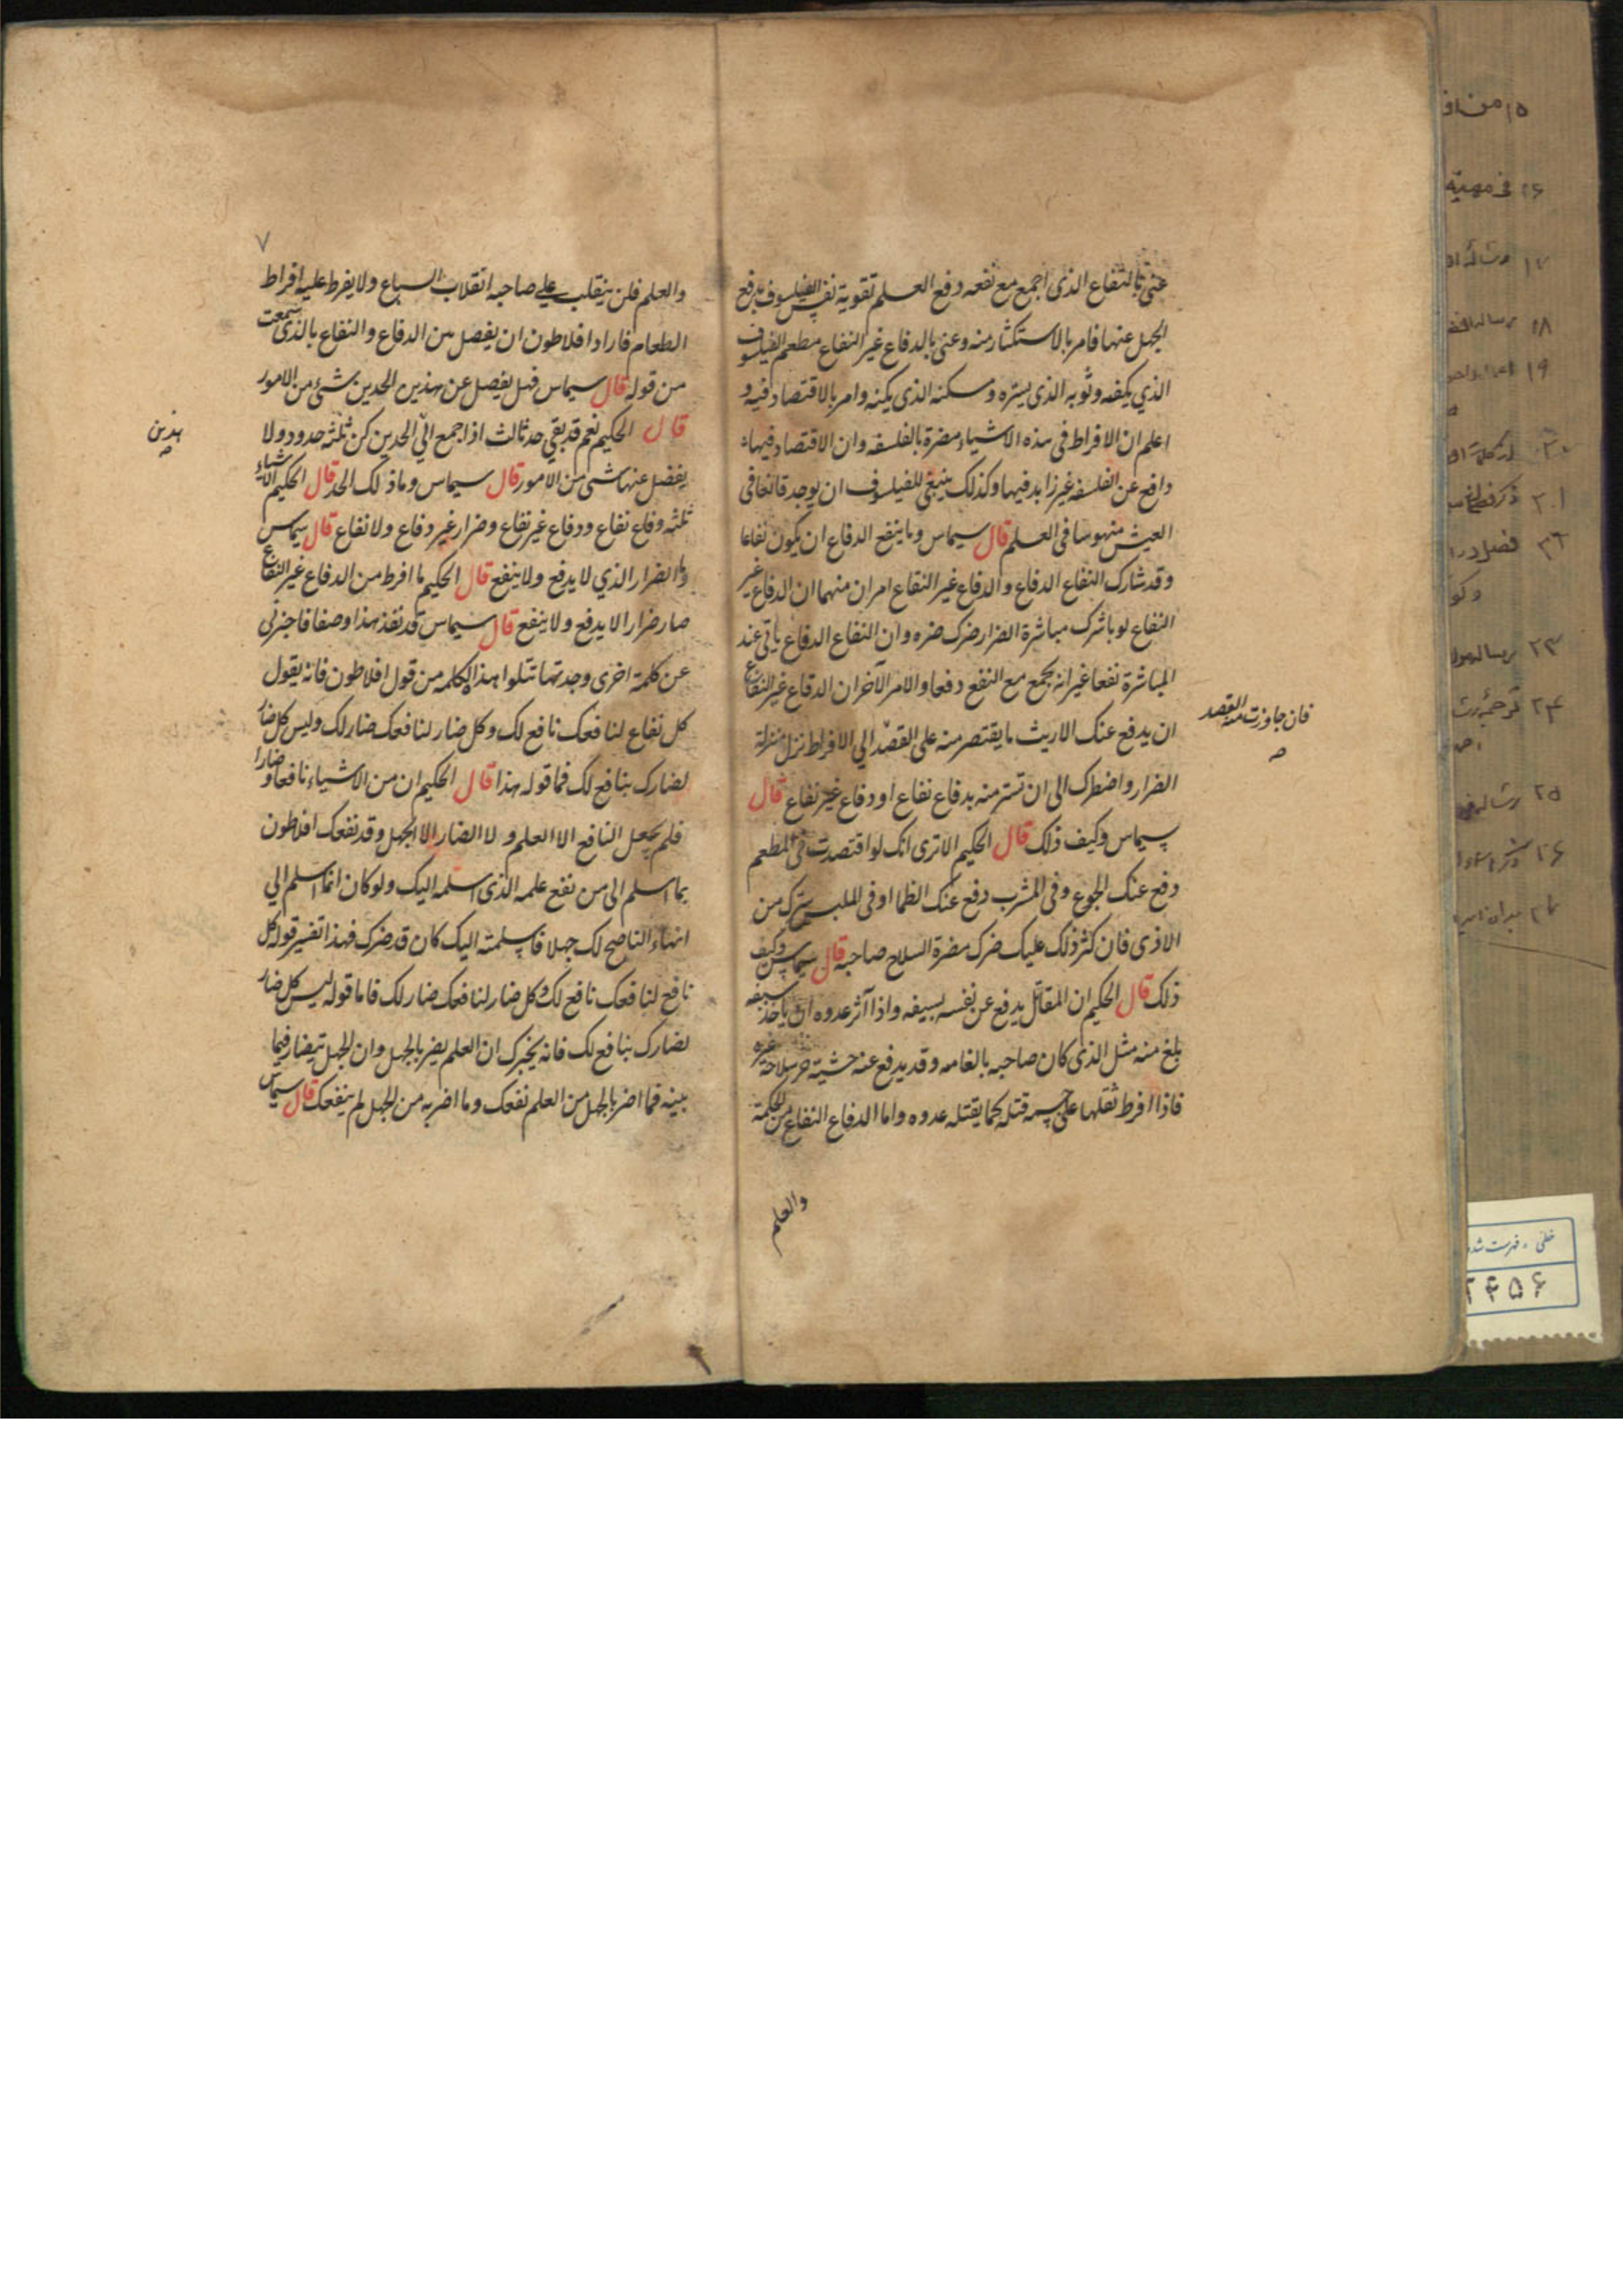 عنى بالنفاع الذى اجمع مع نفعه دفع العلم تقوية نفس الفيلسوف بدفع
الجهل عنها فامر بالاستكثار منه وعنى بالدفاع غير النفاع مطعم الفيلسوف
الذي يكفه وثوبه الذى يستره وسكنه الذى يكنه وامر بالاقتصاد فيه و
اعلم ان الافراط فى هذه الاشياء مضرة بالفلسفه وان الاقتصاد فيها
دافع عن الفلسفه غير زايد فيها وكذلك ينبغى للفيلسوف ان يوجد قانعا فى
العيش منهوسا فى العلم قال سيماس وما ينفع الدفاع ان يكون نفاعا
وقد شارك النفاع الدفاع والدفاع غير النفاع امران منهما ان الدفاع غير
النفاع لو باشرك مباشرة الضرار ضرك ضره وان النفاع الدفاع ياتى عند
المباشرة نفعا غير انه يجمع مع النفع دفعا والامر الآخر ان الدفاع غير النفاع
ان يدفع عنك الاريث ما يقتصر منه على القصد الي الافراط نزل منزلة
فان جاوزت منه القصد
صح
الضرار واضطرك الى ان تستتر منه بدفاع نفاع او دفاع غير نفاع قال
سيماس وكيف ذلك قال الحكيم الا ترى انك لو اقتصدت فى المطعم
دفع عنك الجوع وفى المشرب دفع عنك الظما او فى الملبس سترك من
الاذى فان كثر ذلك عليك ضرك مضرة السلاح صاحبه قال سيماس وكيف
ذلك قال الحكيم ان المقاتل يدفع عن نفسه بسيفه واذا آثر عدوه ان ياخذ سيفه
بلغ منه مثل الذى كان صاحبه بالغا منه وقد يدفع عنه خشية حر سلاحه غيره
فاذا افرط ثقلها على جسمه قتله كما يقتله عدوه واما الدفاع النفاع من الحكمة
والعلم
٧
والعلم فلن ينقلب على صاحبه انقلاب السباع ولا يفرط عليه افراط
الطعام فاراد افلاطون ان يفصل بين الدفاع والنفاع بالذى سمعت
من قوله قال سيماس فهل يفصل عن هذين الحدين شئ من الامور
قال الحكيم نعم قد بقى حد ثالث اذا جمع الي الحدين كن ثلثه حدود ولا
هذين
صح
يفضل عنها شئ من الامور قال سيماس وما ذلك الحد قال الحكيم الاشياء
ثلثه دفاع نفاع ودفاع غير نفاع وضرار غير دفاع ولا نفاع قال سيماس
وما الضرار الذي لا يدفع ولا ينفع قال الحكيم ما افرط من الدفاع غير النفاع
صار ضرارا لا يدفع ولا ينفع قال سيماس قد نفذ هذا وصفا فاخبرنى
عن كلمة اخرى وجدتها تتلوا هذا الكلمه من قول افلاطون فانه يقول
كل نفاع لنافعك نافع لك وكل ضار لنافعك ضار لك وليس كل ضار
لضارك بنافع لك فما قوله هذا قال الحكيم ان من الاشياء نافعا و ضارا
فلم يجعل النافع الا العلم ولا الضار الا الجهل وقد نفعك افلاطون
بما اسلم الى من نفع علمه الذى اسلمه اليك ولو كان انما اسلم الي
انهاء الناصح لك جهلا فاسلمته اليك كان قد ضرك فهذا تفسير قوله كل
نافع لنافعك نافع لك وكل ضار لنافعك ضار لك فاما قوله ليس كل ضار
لضارك بنافع لك فانه يخبرك ان العلم يضر بالجهل وان الجهل يتضار فيما
بينه فما اضر بالجهل من العلم نفعك وما اضر به من الجهل لم ينفعك قال سيماس
١٥ من
١٦ فى مهية
١٧ رسالة
١٨ رساله
١٩
٢٠
٢١ ذكر
٢٢ فصل در
٢٣ رساله
٢٤ ترجمه
٢٥ رساله
٢٦ ذكر
خطى - فهرست شده
٢٤٥٦